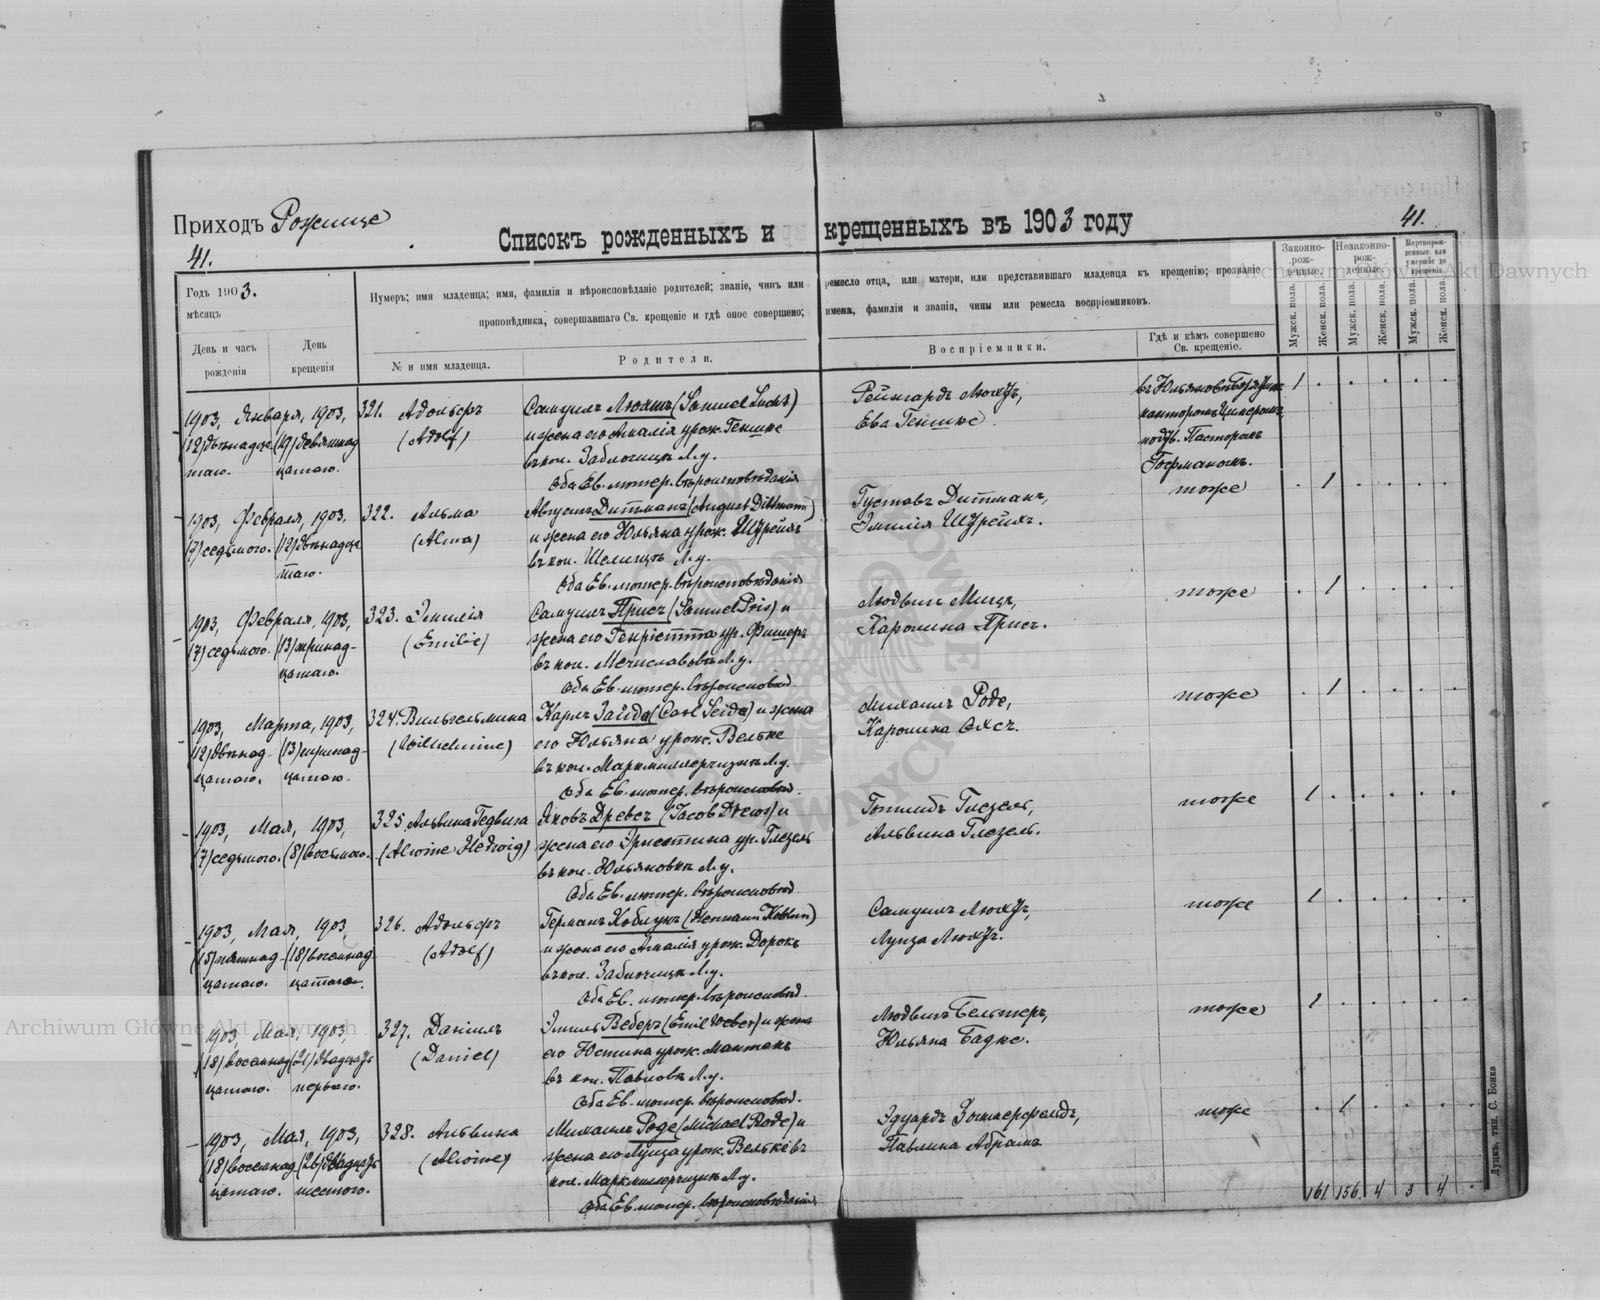 Приходъ Рожище
Списокъ рожденныхъ и крещенныхъ въ 1903 году
41.
41.
Годъ 1903.
мѣсяцъ
День и часъ рожденія
День крещенія
Нумеръ; имя младенца; имя, фамилія и вѣроисповѣданіе родителей; званіе, чинъ или ремесло отца, или матери, или представившаго младенца къ крещенію; прозваніе
проповѣдника, совершавшаго Св. крещеніе и гдѣ оное совершено; имена, фамиліи и званія, чины или ремесла воспріемниковъ.
№ и имя младенца.
Родители.
Воспріемники.
Гдѣ и кѣмъ совершено Св. крещеніе.
Законно-рож-денные.
Незаконно-рож-денные.
Мертворож-денные или умершіе до крещенія.
Мужск. пола.
Женск. пола.
Мужск. пола.
Женск. пола.
Мужск. пола.
Женск. пола.
Archiwum Główne Akt Dawnych
1903, Января, 1903,
(12) двѣнадца- (19) девятнад-
таго. цатаго.
321. Адольфъ
(Adolf)
Самуилъ Люхтъ (Samuel Lucht)
и жена его Амалія урож. Геншке
въ кол. Заблочицѣ Л. у.
Оба Ев. лютер. вѣроисповѣданія
Рейнгардъ Люхтъ,
Ева Геншке.
Пасторомъ
Гофманомъ.
1903, Февраля, 1903.
(7) седьмого. (12) двѣнадца-
таго.
322. Альма
(Alma)
Августъ Дитманъ (August Dittmann)
и жена его Юльяна урож. Штрейхъ
въ кол. Шелицѣ Л. у.
Оба Ев. лютер. вѣроисповѣданія
Густавъ Дитманъ,
Эмилія Штрейхъ.
тоже
1903, Февраля, 1903,
(7) седьмого. (13) тринад-
цатаго.
323. Эмилія
(Emilie)
Самуилъ Присъ (Samuel Pris) и
жена его Генріетта ур. Фишеръ
въ кол. Мечиславовѣ Л. у.
Оба Ев. лютер. вѣроисповѣд.
Людвигъ Мицъ,
Каролина Присъ.
тоже
1903, Марта, 1903,
(12) двѣнад- (13) тринад-
цатаго. цатаго.
324. Вильгельмина
(Wilhelmine)
Карлъ Зайде (Carl Seide) и жена
его Юльяна урож. Вельке
въ кол. Маркмиллерчизнѣ Л. у.
Оба Ев. лютер. вѣроисповѣд.
Михаилъ Роде,
Каролина Оксъ.
тоже
1903, Мая, 1903,
(7) седьмого. (8) восьмого.
325. Альвина Гедвига
(Alwine Hedwig)
Яковъ Древсъ (Jacob Drews) и
жена его Эрнестина ур. Глезель
въ кол. Юльяновкѣ Л. у.
Оба Ев. лютер. вѣроисповѣд.
Готлибъ Глезель,
Альвина Глезель.
тоже
1903, Мая, 1903,
(15) пятнад- (18) восемнад-
цатаго. цатаго.
326. Адольфъ
(Adolf)
Германъ Коблунъ (Hermann Koblun)
и жена его Амалія урож. Дорокъ
въ кол. Заблочицѣ Л. у.
Оба Ев. лютер. вѣроисповѣд.
Самуилъ Люхтъ,
Луиза Люхтъ.
тоже
1903, Мая, 1903,
(18) восемнад- (21) двадцать
цатаго. перваго.
327. Даніилъ
(Daniel)
Эмиль Веберъ (Emil Weber) и жена
его Юстина урож. Мантай
въ кол. Павловкѣ Л. у.
Оба Ев. лютер. вѣроисповѣд.
Людвигъ Бельтеръ,
Юльяна Бадке.
тоже
1903, Мая, 1903,
(18) восемнад- (26) двадцать
цатаго. шестого.
328. Альвина
(Alwine)
Михаилъ Роде (Michael Rode) и
жена его Луиза урож. Вельке въ
кол. Маркмиллерчизнѣ Л. у.
Оба Ев. лютер. вѣроисповѣданія
Эдуардъ Зоммерфельдъ,
Павлина Абрамъ
тоже
161. 156. 4 3 4 .
Луцкъ, тип. С. Бонка
Archiwum Główne Akt Dawnych